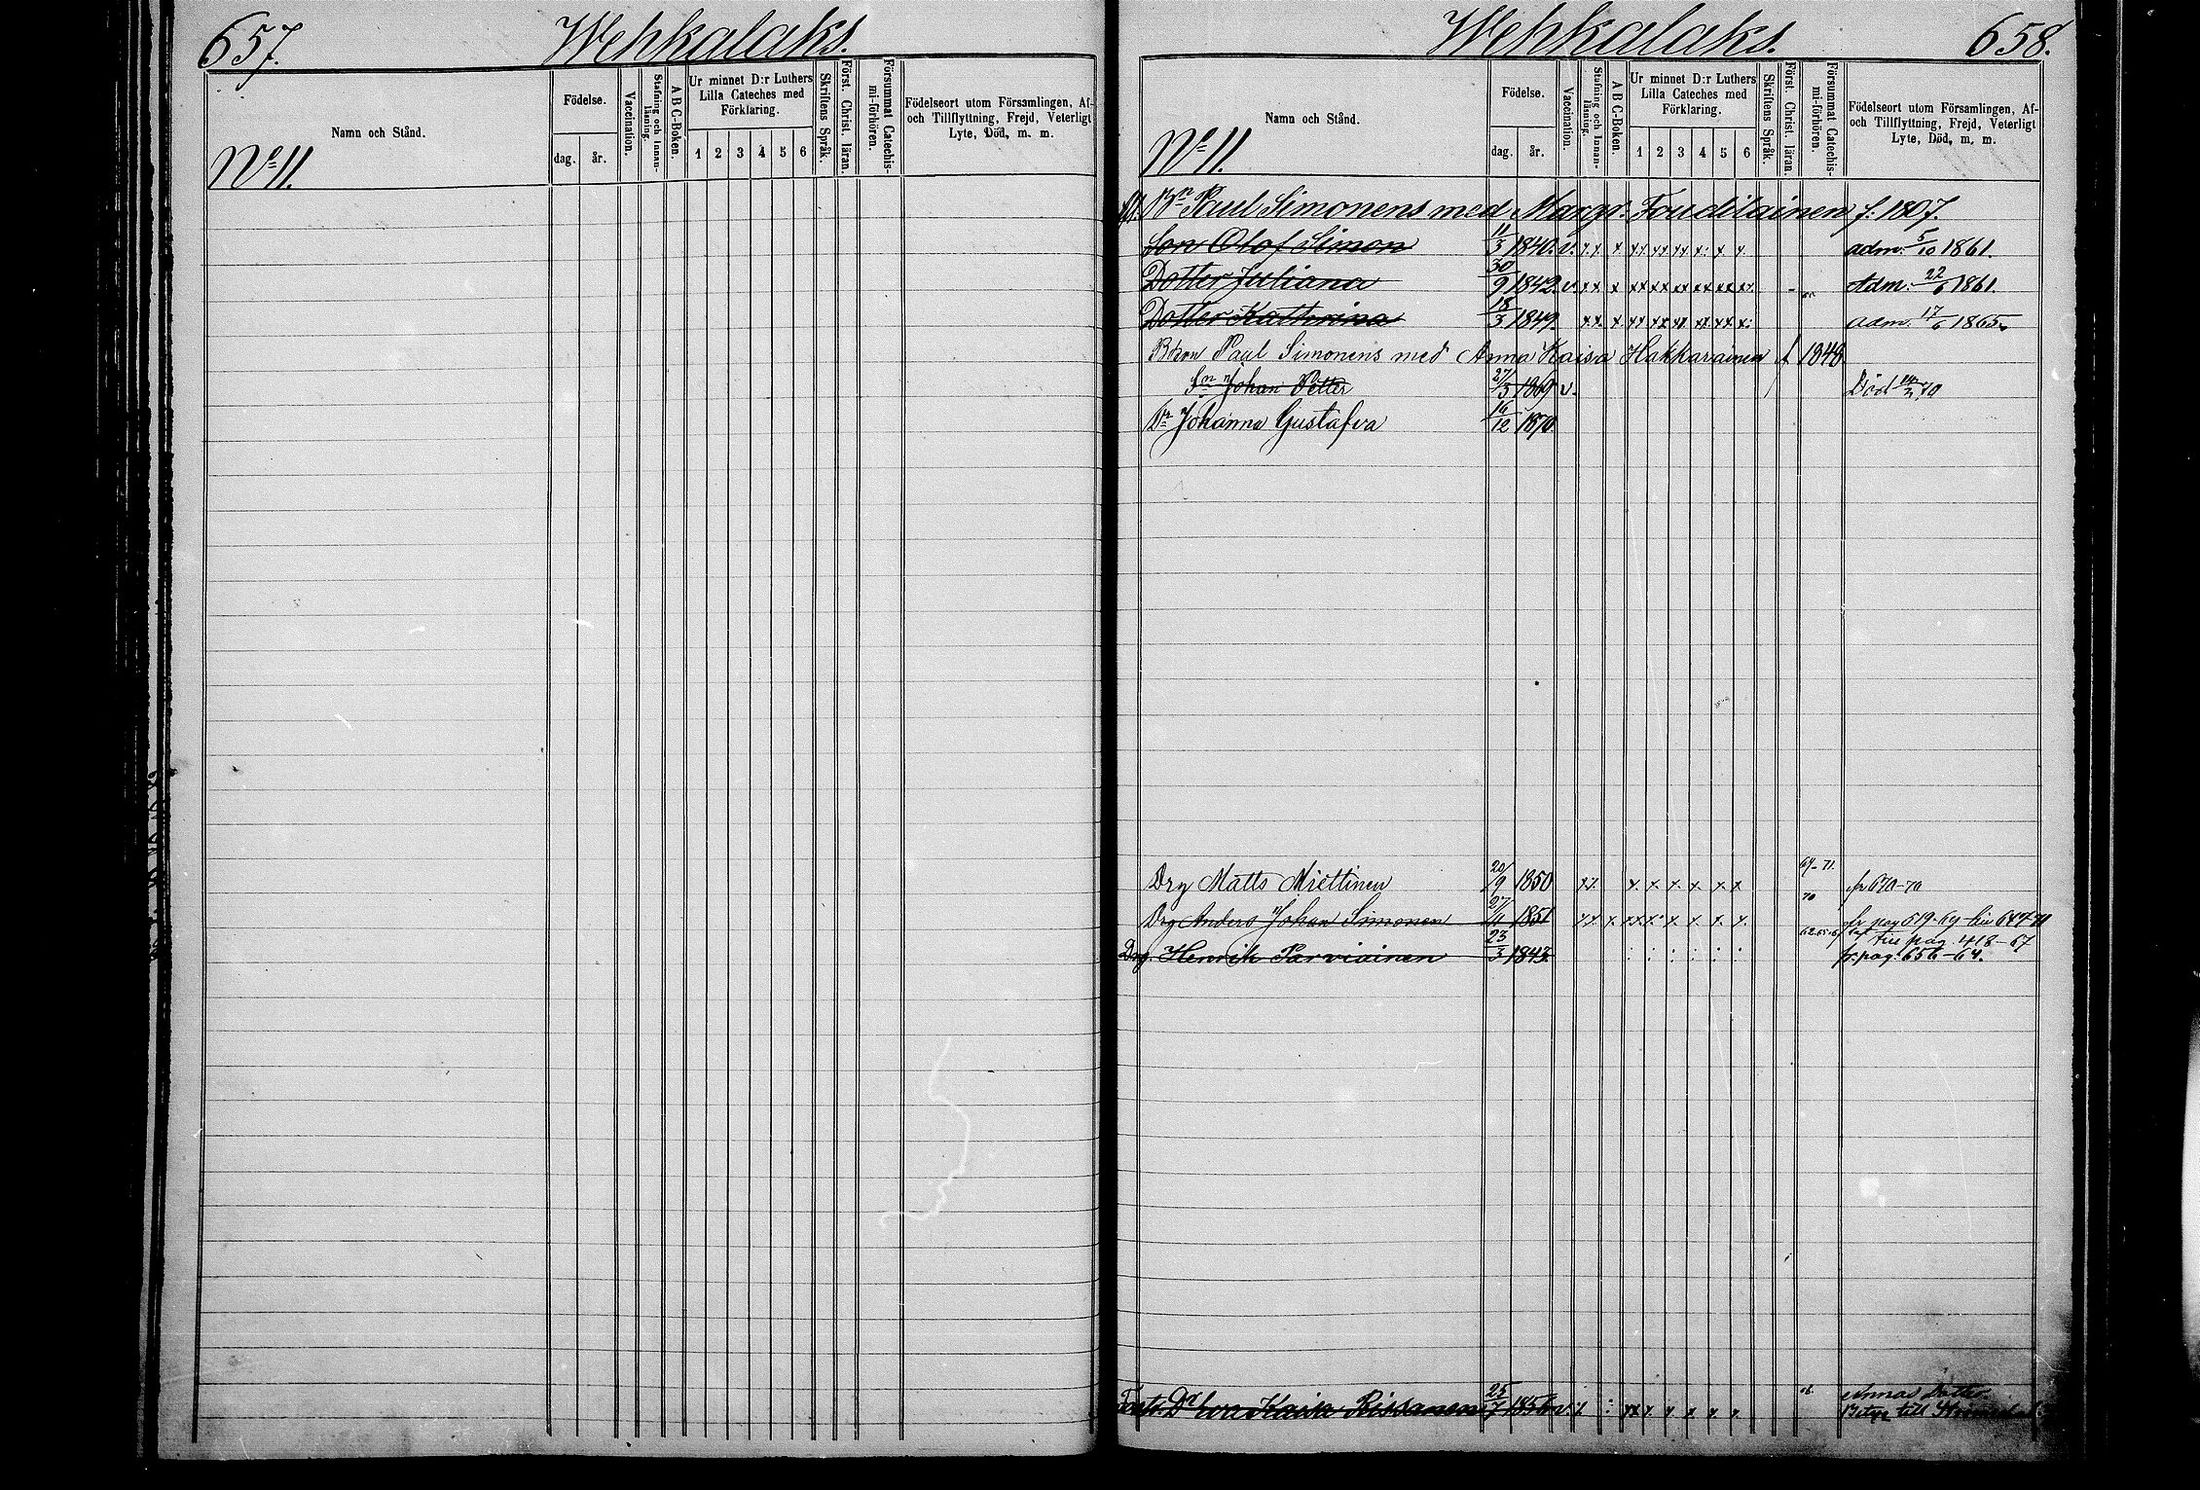 657.
Wehkalaks.
Namn och Stånd.
Födelse.
dag.
år.
Vaccination.
Stafning och Innan-läsning.
A B C-Boken.
Ur minnet D:r Luthers
Lilla Cateches med
Förklaring.
1 2 3 4 5 6
Skriftens Språk.
Först. Christ. läran.
Försummat Catechis-mi-förhören.
Födelseort utom Församlingen, Af-
och Tillflyttning, Frejd, Veterligt
Lyte, Död, m. m.
No 11.
Wehkalaks.
658.
Namn och Stånd.
Födelse.
dag.
år.
Vaccination.
Stafning och Innan-läsning.
A B C-Boken.
Ur minnet D:r Luthers
Lilla Cateches med
Förklaring.
1 2 3 4 5 6
Skriftens Språk.
Först. Christ. läran.
Försummat Catechis-mi-förhören.
Födelseort utom Församlingen, Af-
och Tillflyttning, Frejd, Veterligt
Lyte, Död, m. m.
No 11.
Paul Simonens med Margr. f: 1807.
Son Olof Simon 11/3 1840. v. adm. 5/10 1861.
Dotter Juliana 30/9 1842 v. Adm. 22/6 1861.
Dotter Kathrina 18/3 1849. adm. 17/6 1865.
Börn Paul Simonens med Anna Kaisa Hakkarainen f 1848
Sn Johan Petter 27/3 1869 v. Död
Dr Johanna Gustafva 16/12 1870
Dry Matts Miettinen 20/9 1850 69-71. fr 670-70
Dry Anders Johan Simonen 27/11 1851 70 fr pag 519-69
pag 418-67
Drg. Henrik Parviainen 23/3 1843. fr. pag. 656-64.
Annas Dotter
Dr Eva Kaisa Rissanen 25/7 1856 v. Betyg till